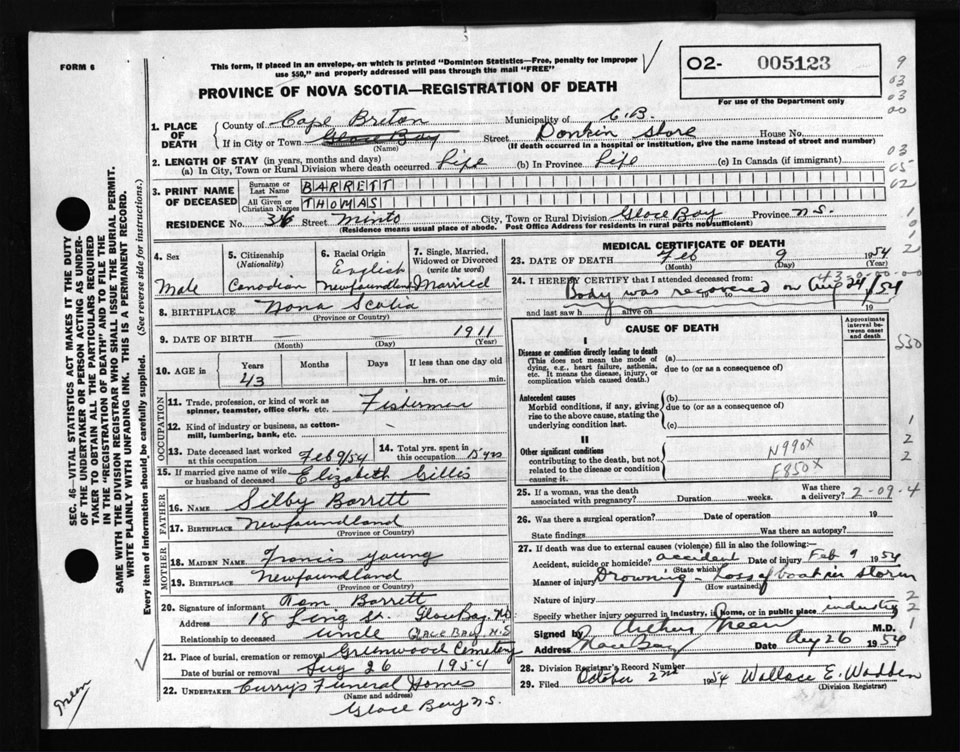 FORM 6
This form, if placed in an envelope, on which is printed "Dominion Statistics—Free, penalty for improper
use $50," and properly addressed will pass through the mail "FREE"
PROVINCE OF NOVA SCOTIA—REGISTRATION OF DEATH
O2- 005123
For use of the Department only
9
03
03
00
03
05
02
1
0
1
2
SEC. 46—VITAL STATISTICS ACT MAKES IT THE DUTY
OF THE UNDERTAKER OR PERSON ACTING AS UNDER-
TAKER TO OBTAIN ALL THE PARTICULARS REQUIRED
IN THE "REGISTRATION OF DEATH" AND TO FILE THE
SAME WITH THE DIVISION REGISTRAR WHO SHALL ISSUE THE BURIAL PERMIT.
WRITE PLAINLY WITH UNFADING INK. THIS IS A PERMANENT RECORD.
Every item of information should be carefully supplied. (See reverse side for instructions.)
1. PLACE OF DEATH
County of Cape Breton Municipality of C.B.
If in City or Town Glace Bay Street Donkin Shore House No.
(Name) (If death occurred in a hospital or institution, give the name instead of street and number)
2. LENGTH OF STAY (in years, months and days)
(a) In City, Town or Rural Division where death occurred Life (b) In Province Life (c) In Canada (if immigrant)
3. PRINT NAME OF DECEASED
Surname or Last Name BARRETT
All Given or Christian Names THOMAS
RESIDENCE No. 36 Street Minto City, Town or Rural Division Glace Bay Province N.S.
(Residence means usual place of abode. Post Office Address for residents in rural parts not sufficient)
4. Sex Male
5. Citizenship (Nationality) Canadian
6. Racial Origin English Newfoundland
7. Single, Married, Widowed or Divorced (write the word) Married
8. BIRTHPLACE Nova Scotia
(Province or Country)
9. DATE OF BIRTH 1911
(Month) (Day) (Year)
10. AGE in Years 43 Months Days If less than one day old
hrs. or min.
OCCUPATION
11. Trade, profession, or kind of work as
spinner, teamster, office clerk, etc. Fisherman
12. Kind of industry or business, as cotton-
mill, lumbering, bank, etc.
13. Date deceased last worked
at this occupation Feb 9/54
14. Total yrs. spent in
this occupation 15 yrs
15. If married give name of wife
or husband of deceased Elizabeth Gillis
FATHER
16. NAME Silby Barrett
17. BIRTHPLACE Newfoundland
(Province or Country)
MOTHER
18. MAIDEN NAME Francis Young
19. BIRTHPLACE Newfoundland
(Province or Country)
20. Signature of informant Tom Barrett
Address 18 Ling St. Glace Bay, N.S.
Relationship to deceased uncle GLACE BAY, N.S
21. Place of burial, cremation or removal Greenwood Cemetery
Date of burial or removal Aug 26 1954
22. UNDERTAKER Curry's Funeral Homes
(Name and address)
Glace Bay N.S.
Green
MEDICAL CERTIFICATE OF DEATH
23. DATE OF DEATH Feb 9 1954
(Month) (Day) (Year)
43-0-00-00-00
24. I HEREBY CERTIFY that I attended deceased from:
Body was recovered on Aug 24/54
19 to
and last saw h alive on 19
CAUSE OF DEATH
Approximate interval between onset and death
I
Disease or condition directly leading to death (a)
(This does not mean the mode of due to (or as a consequence of)
dying, e.g., heart failure, asthenia,
etc. It means the disease, injury, or
complication which caused death.)
Antecedent causes (b)
Morbid conditions, if any, giving due to (or as a consequence of)
rise to the above cause, stating the
underlying condition last. (c)
II
Other significant conditions
contributing to the death, but not
related to the disease or condition
causing it.
N990X
F850X
530
1
2
2
25. If a woman, was the death
associated with pregnancy? Duration weeks. Was there
a delivery? 2-09-4
26. Was there a surgical operation? Date of operation 19
State findings Was there an autopsy?
27. If death was due to external causes (violence) fill in also the following:—
Accident, suicide or homicide? accident Date of injury Feb 9 1954
(State which)
Manner of injury Drowning - Loss of boat in storm
(How sustained)
Nature of injury
Specify whether injury occurred in industry, in home, or in public place industry
2
2
1
Signed by Arthur M.D.
Address Glace Bay Date Aug 26 1954
28. Division Registrar's Record Number
29. Filed October 2nd 1954 Wallace E. Wadden
(Division Registrar)